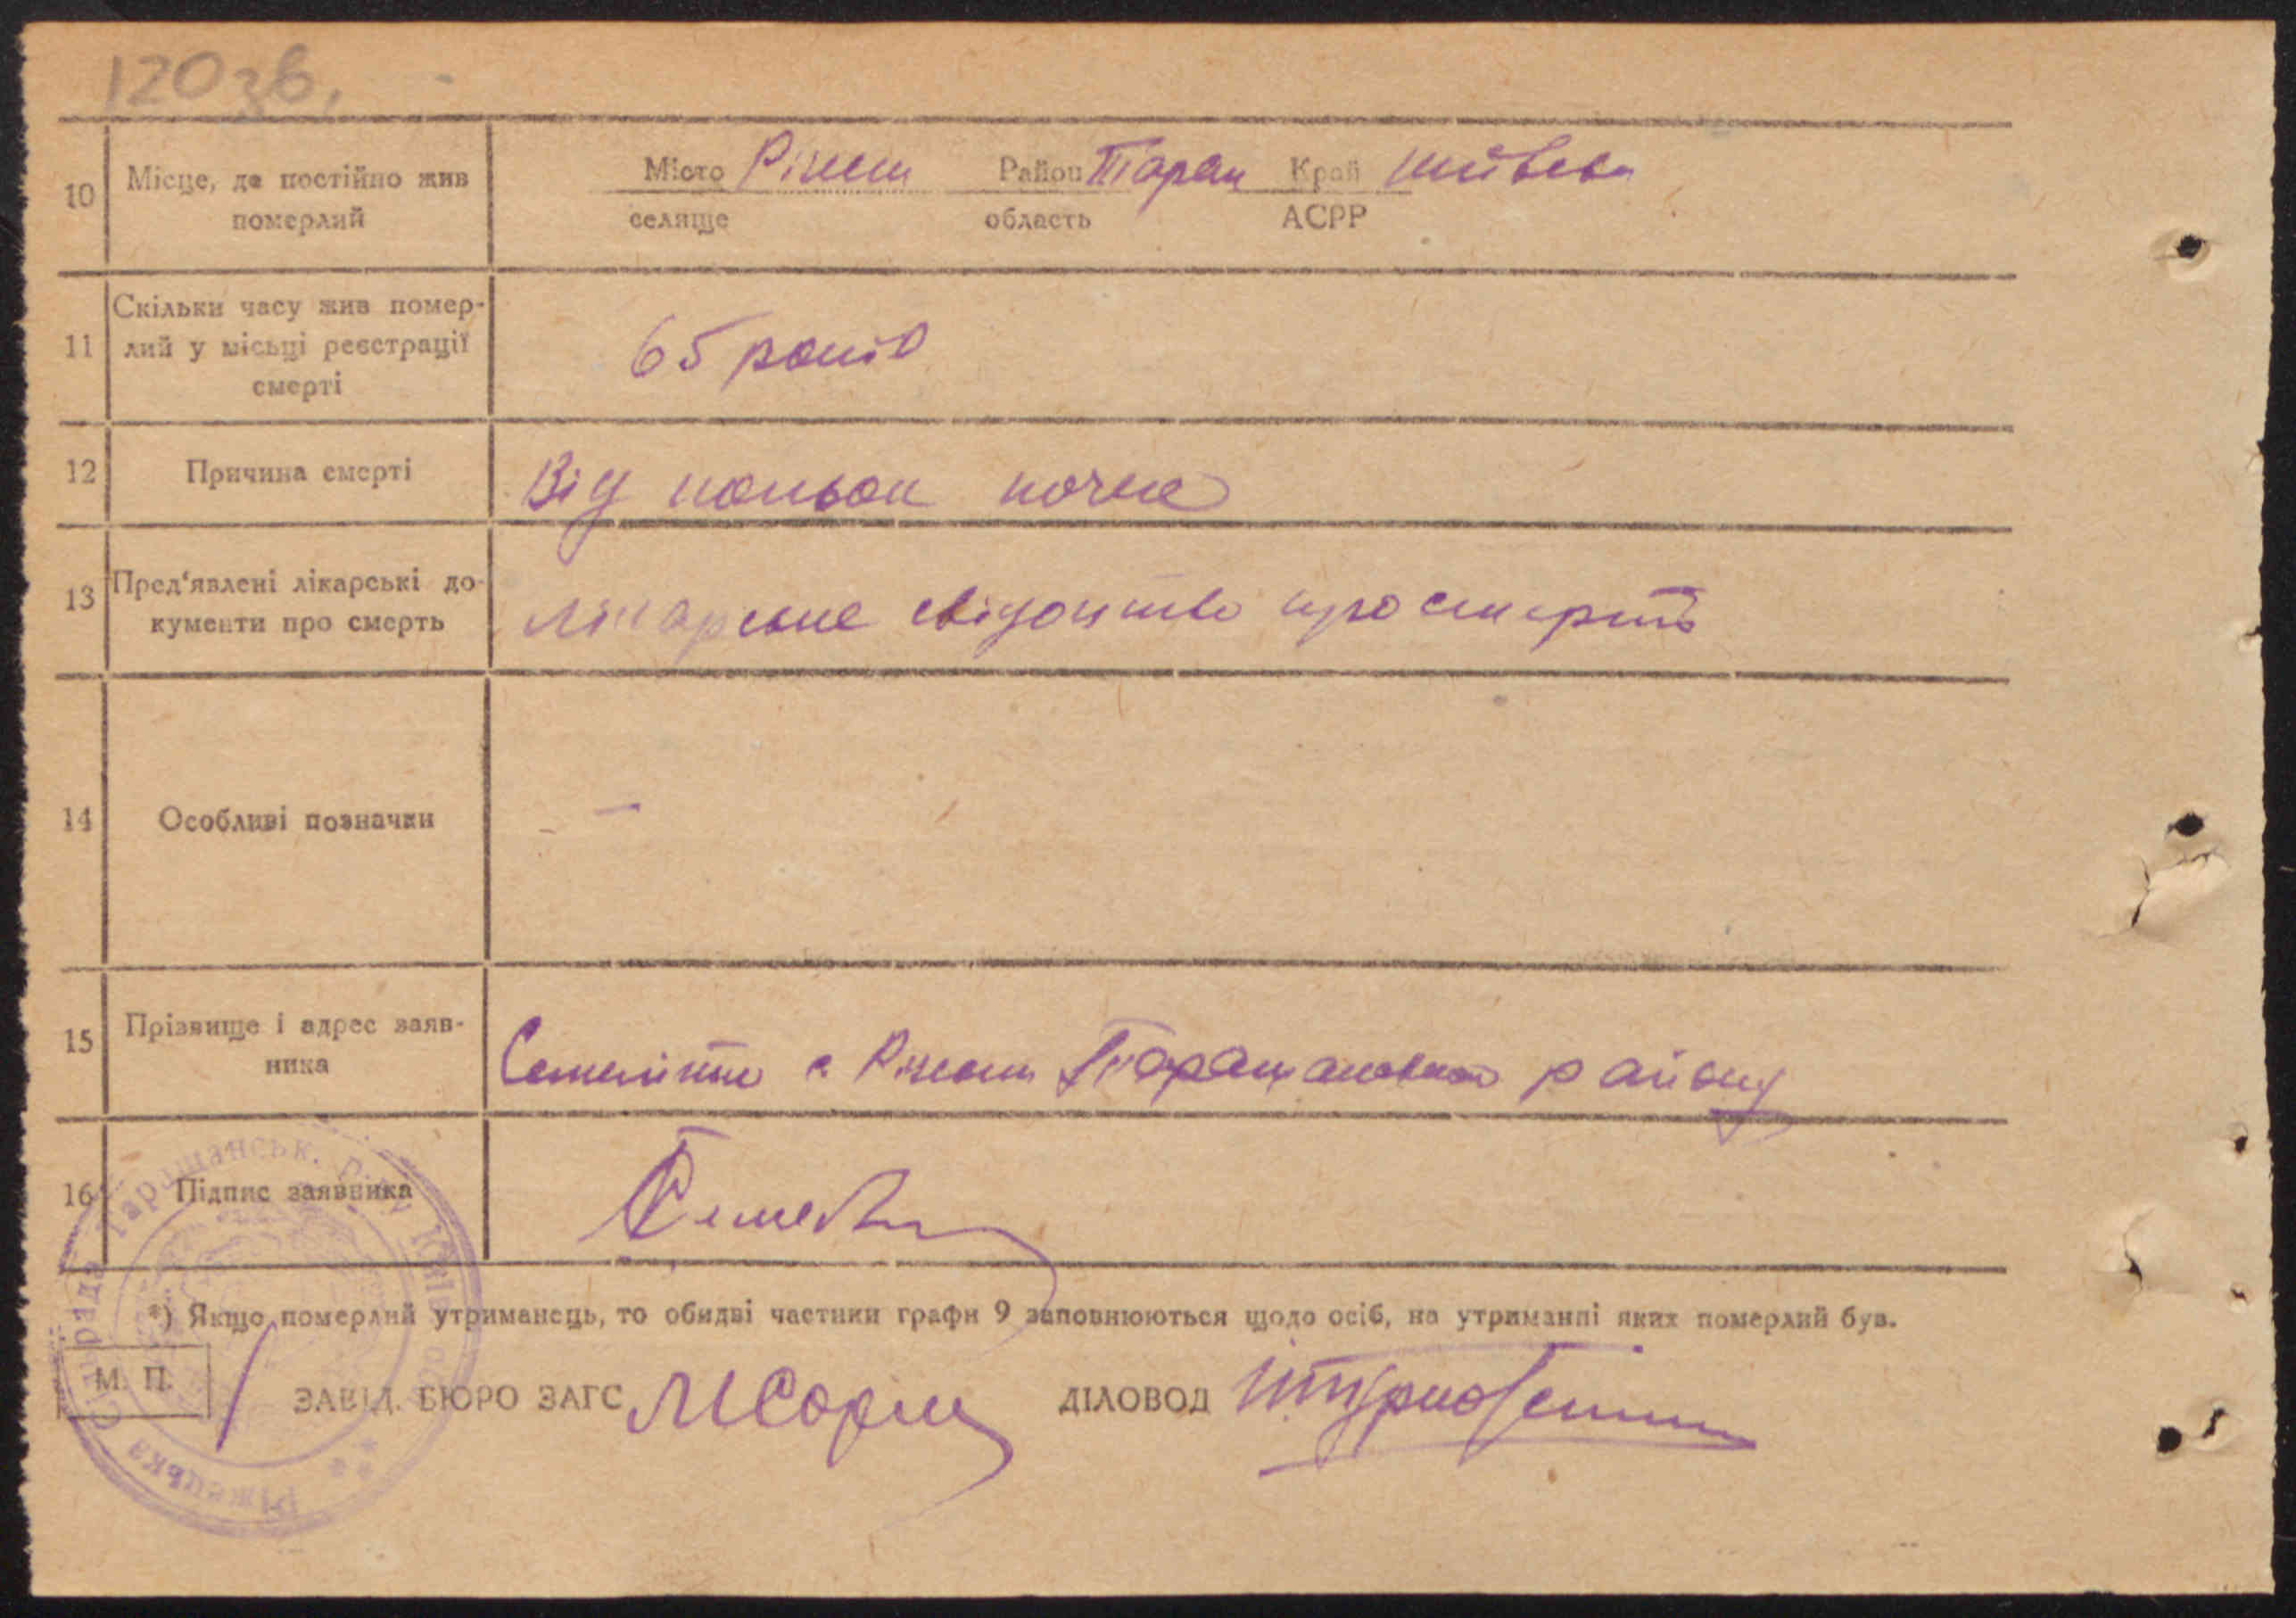 120 зв.
10 Місце, де постійно жив померлий
Місто Ріжки Район Таращ Край Київськ
селище область АСРР
11 Скільки часу жив помер-
лий у місьці реєстрації
смерті
65 років
12 Причина смерті
Від
13 Пред'явлені лікарські до-
кументи про смерть
лікарське свідоцтво про смерть
14 Особливі позначки
—
15 Прізвище і адрес заяв-
ника
с. Ріжки Таращанського району
16 Підпис заявника
*) Якщо померлий утриманець, то обидві частини графи 9 заповнюються щодо осіб, на утриманні яких померлий був.
М. П.
ЗАВІД. БЮРО ЗАГС ДІЛОВОД
Ріжецька Сільрада Таращанськ. р-ну Київ. обл.